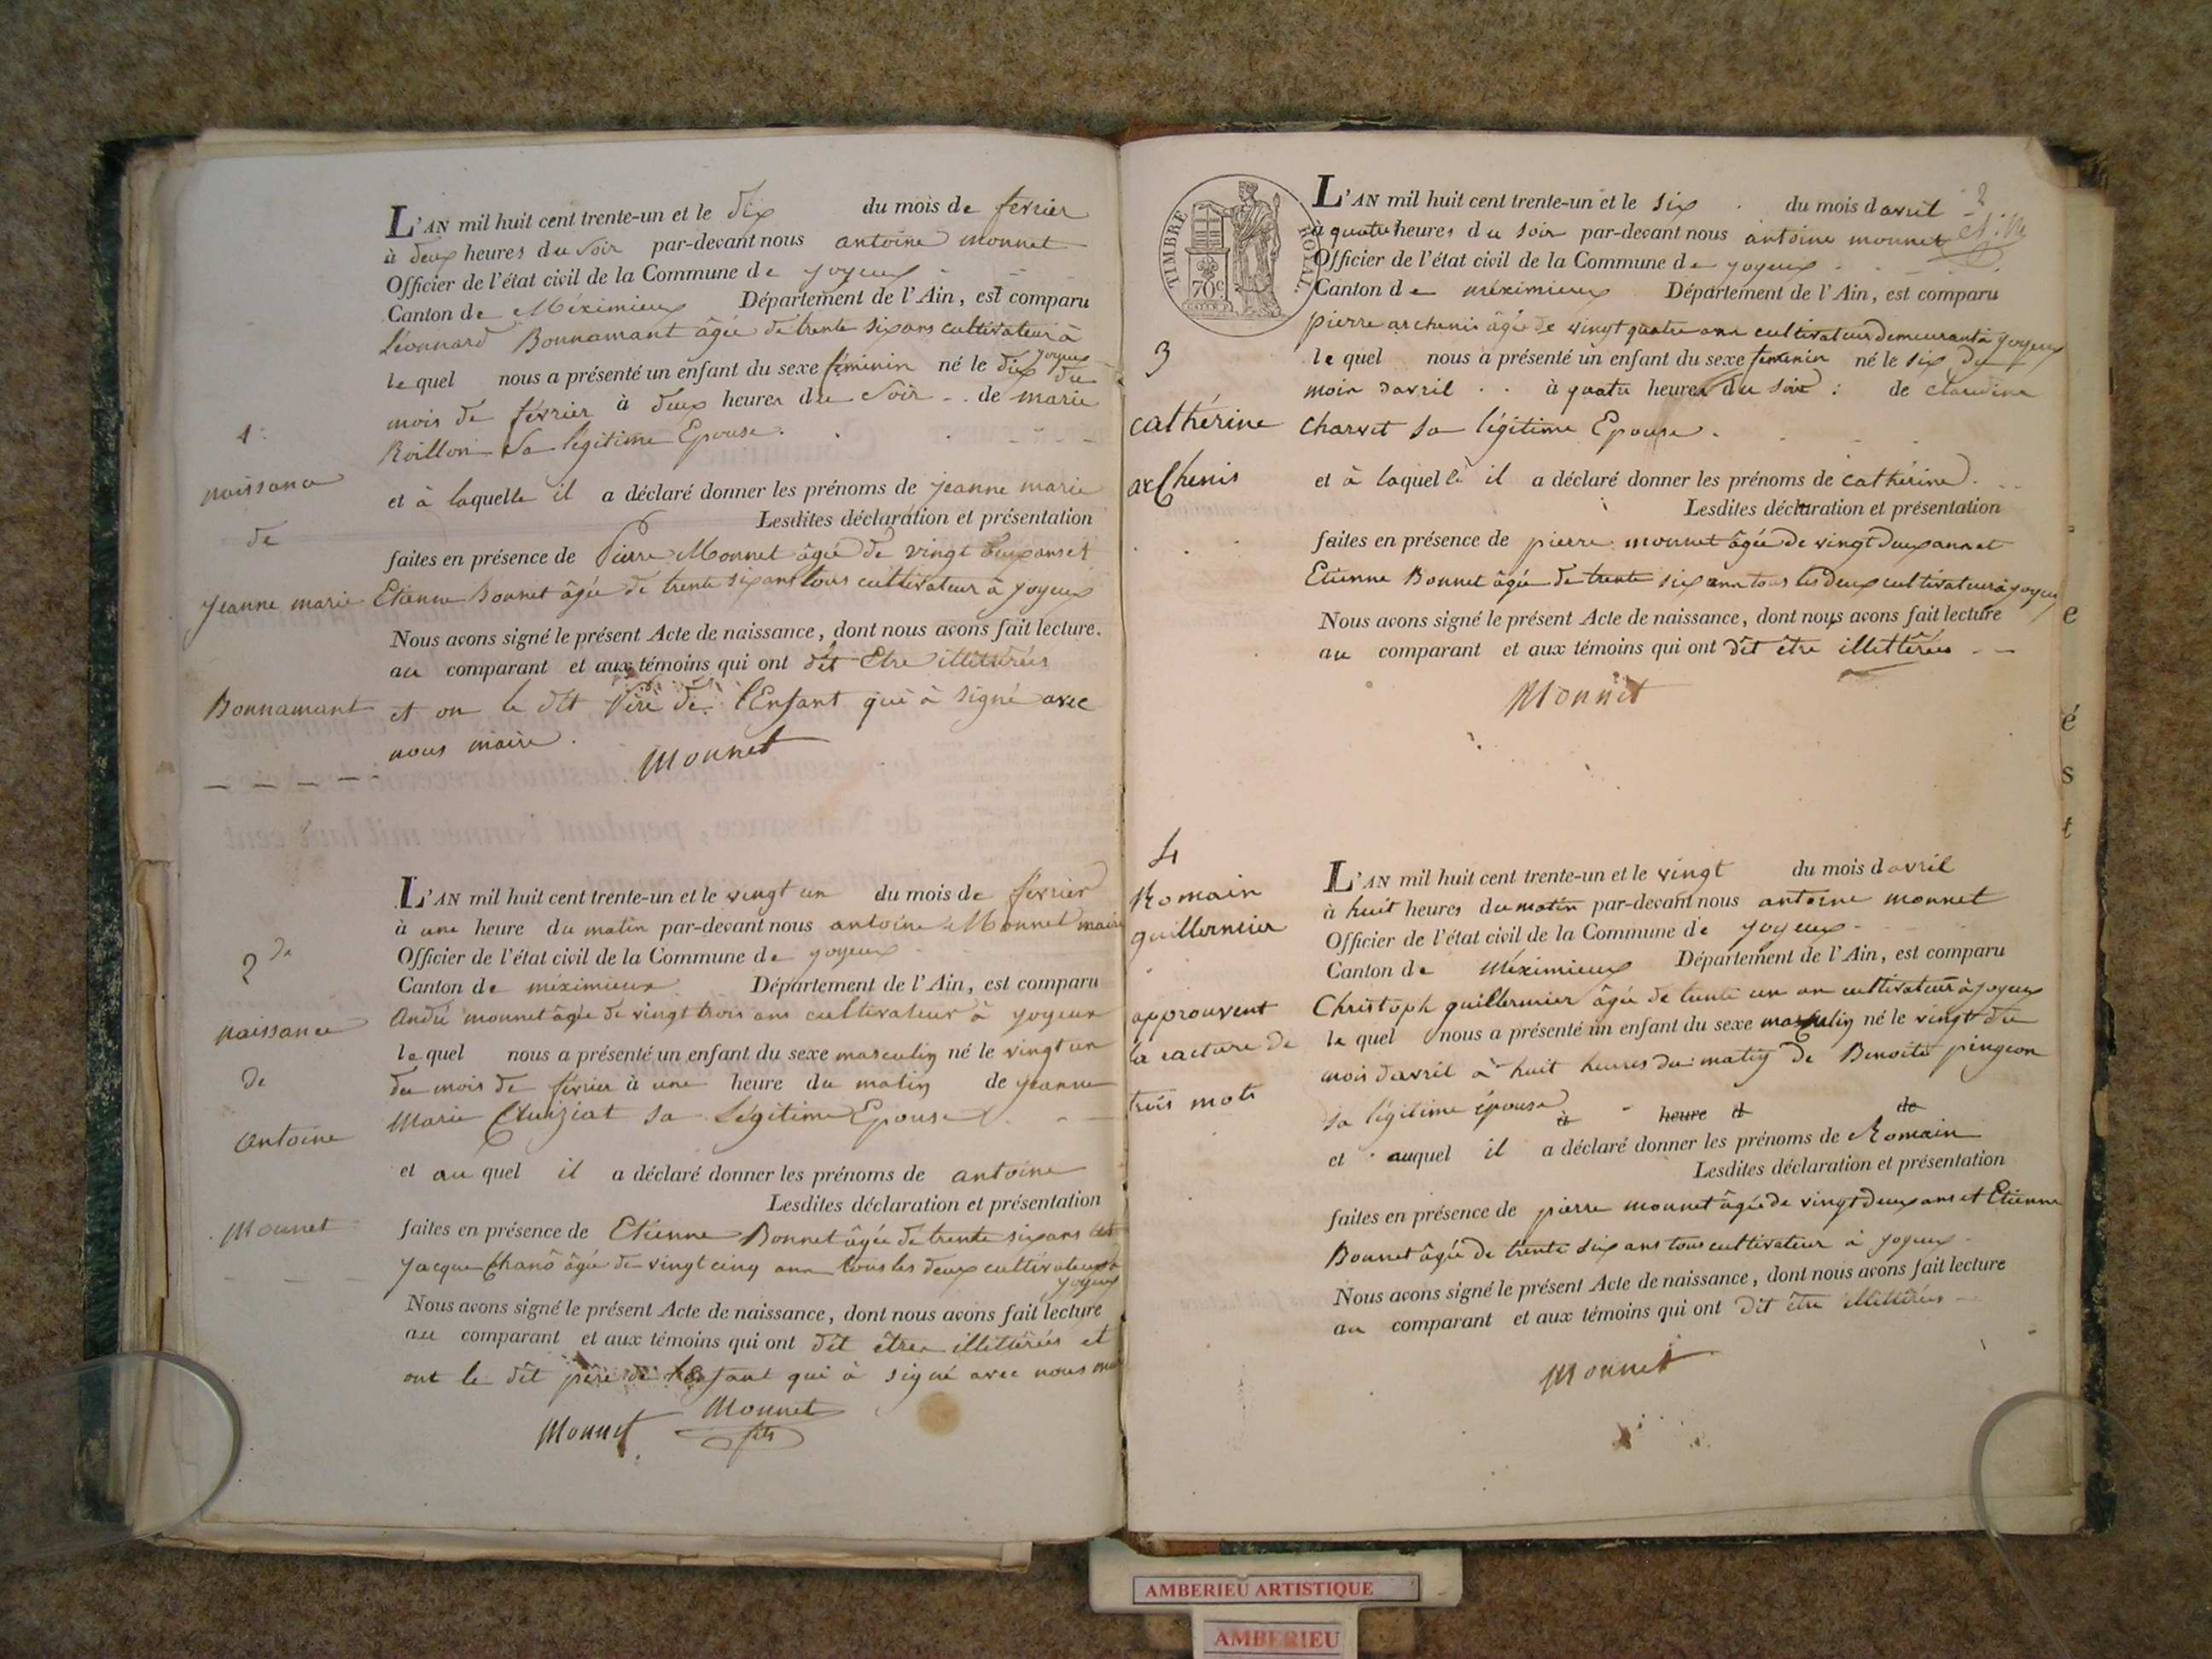 L'AN mil huit cent trente-un et le dix du mois de fevrier
à deux heures du soir par-devant nous antoine monnet
Officier de l'état civil de la Commune de joyeux
Canton de Méximieux Département de l'Ain, est comparu
Léonnard Bonnamant âgée de trente six ans cultivateur à
joyeux
le quel nous a présenté un enfant du sexe féminin né le dix du
mois de février à deux heures du soir de marie
Roillon sa légitime Epouse.
et à laquelle il a déclaré donner les prénoms de jeanne marie
Lesdites déclaration et présentation
faites en présence de Pierre Monnet âgée de vingt deux ans et
Etienne Bonnet âgée de trente six ans tous cultivateur à joyeux
Nous avons signé le présent Acte de naissance, dont nous avons fait lecture.
au comparant et aux témoins qui ont dit Etre illittérées
et on le dit Père de l'Enfant qui à signé avec
nous maire.
monnet
1.
naissance
de
jeanne marie
Bonnamant
L'AN mil huit cent trente-un et le vingt un du mois de février
à une heure du matin par-devant nous antoine Monnet maire
Officier de l'état civil de la Commune de joyeux
Canton de méximieux Département de l'Ain, est comparu
André monnet âgée de vingt trois ans cultivateur à joyeux
le quel nous a présenté un enfant du sexe masculin né le vingt un
du mois de février à une heure du matin de jeanne
Marie Cluiziat sa Légitime Epouse
et au quel il a déclaré donner les prénoms de antoine
Lesdites déclaration et présentation
faites en présence de Etienne Bonnet âgée de trente six ans et
jacque Chanô âgée de vingt cinq ans tous les deux cultivateur à
joyeux
Nous avons signé le présent Acte de naissance, dont nous avons fait lecture
au comparant et aux témoins qui ont dit être illittérées et
ont le dit père de l'Enfant qui à signé avec nous
Monnet Monnet
fils
2de
naissance
de
antoine
Monnet
TIMBRE ROYAL
70c
L'AN mil huit cent trente-un et le six du mois d avril
à quatre heures du soir par-devant nous antoine monnet
Officier de l'état civil de la Commune de joyeux
Canton de méximieux Département de l'Ain, est comparu
pierre archenis âgée de vingt quatre ans cultivateur demeurant à joyeux
le quel nous a présenté un enfant du sexe feminin né le six du
mois d avril à quatre heures du soir de claudine
charvet sa légitime Epouse.
et à laquelle il a déclaré donner les prénoms de cathérine.
Lesdites déclaration et présentation
faites en présence de pierre monnet âgée de vingt deux ans et
Etienne Bonnet âgée de trente six ans tous les deux cultivateur à joyeux
Nous avons signé le présent Acte de naissance, dont nous avons fait lecture
au comparant et aux témoins qui ont dit être illettérées
Monnet
3
cathérine
archenis
L'AN mil huit cent trente-un et le vingt du mois d avril
à huit heures du matin par-devant nous antoine monnet
Officier de l'état civil de la Commune de joyeux
Canton de Méximieux Département de l'Ain, est comparu
Christoph guillermier âgée de trente un an cultivateur à joyeux
le quel nous a présenté un enfant du sexe masculin né le vingt du
mois d'avril à huit heures du matin de Benoite pingeon
sa légitime épouse
à heure d de
et auquel il a déclaré donner les prénoms de Romain
Lesdites déclaration et présentation
faites en présence de pierre monnet âgée de vingt deux ans et Etienne
Bonnet âgée de trente six ans tous cultivateur à joyeux
Nous avons signé le présent Acte de naissance, dont nous avons fait lecture
au comparant et aux témoins qui ont dit être illittérées
monnet
4
Romain
guillermier
approuvent
la racture de
trois mots
e
é
s
t
AMBERIEU ARTISTIQUE
AMBERIEU